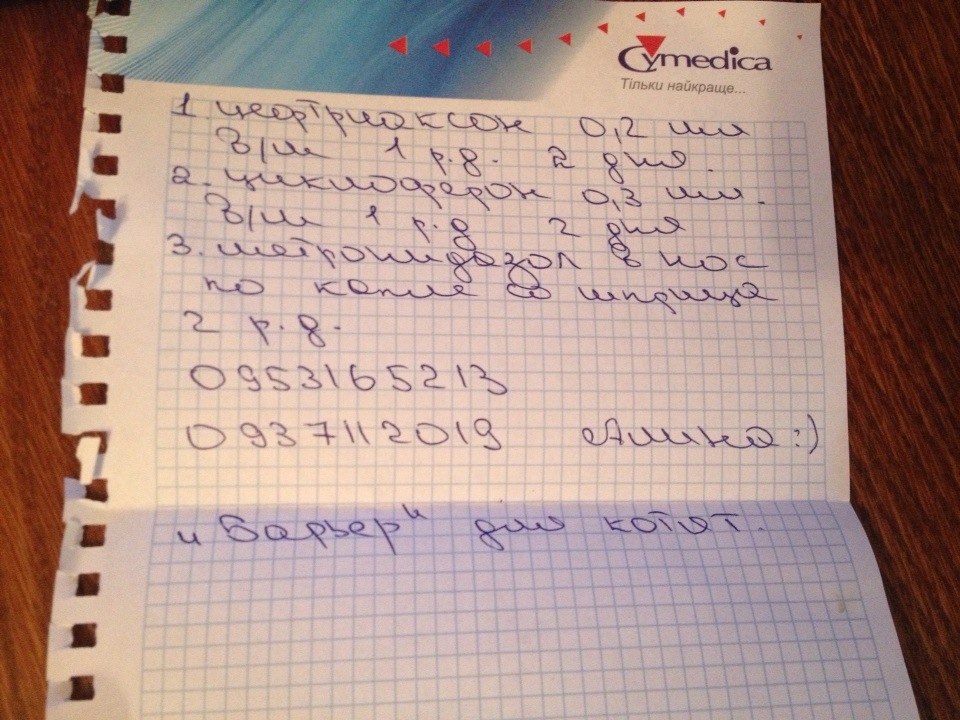 Cymedica
Тільки найкраще...
1. цефтриаксон 0,2 мл
В/м 1 р.д. 2 дня.
2. циклоферон 0,3 мл.
В/м 1 р.д 2 дня
3. метронидазол в нос
по капле со шприца
2 р.д.
0953165213
0937112019 Алина :)
"Барьер" для котят.